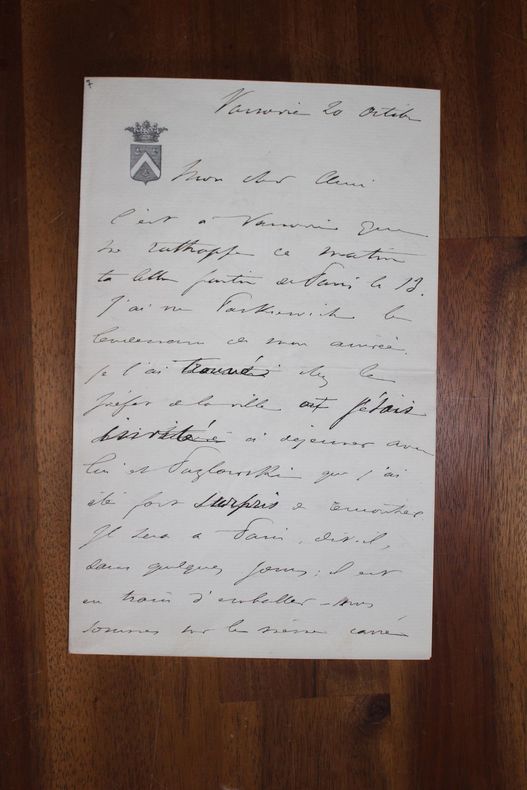 7
Varsovie 20 octobre
Mon cher Ami
C'est à Varsovie que
me rattrappe ce matin
ta lettre partie de Paris le 13.
J'ai vu le
lendemain de mon arrivée.
Je l'ai trouvé chez le
préfet de la ville où j'étais
invité à déjeuner avec
lui et que j'ai
été fort surpris de rencontrer
Il sera à Paris, dit-il,
dans quelques jours ; il est
en train d'emballer - nous
sommes sur le même carré